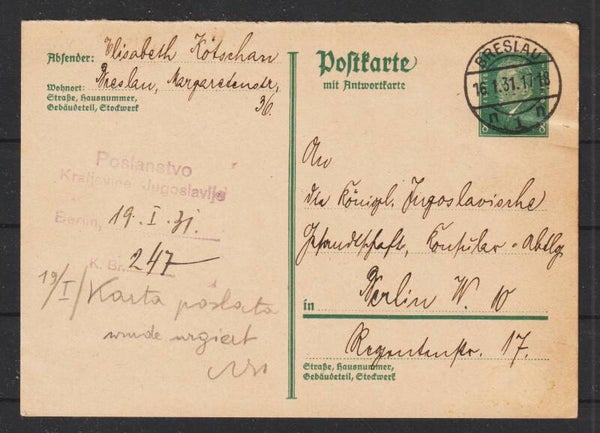 Absender: Elisabeth Kötschau
Wohnort: Breslau, Margaretenstr.
Straße, Hausnummer, 36.
Gebäudeteil, Stockwerk
Poslanstvo
Kraljevine Jugoslavije
Berlin, 19. I. 31.
K. Br. 247
19/I / Karta poslata
wurde urgiert
Postkarte
mit Antwortkarte
BRESLAU
16.1.31.17-18
n 1 n
8 8
An
die Königl. Jugoslavische
Gesandtschaft, Consular-Abtlg
in Berlin W. 10
Regentenstr. 17.
Straße, Hausnummer,
Gebäudeteil, Stockwerk